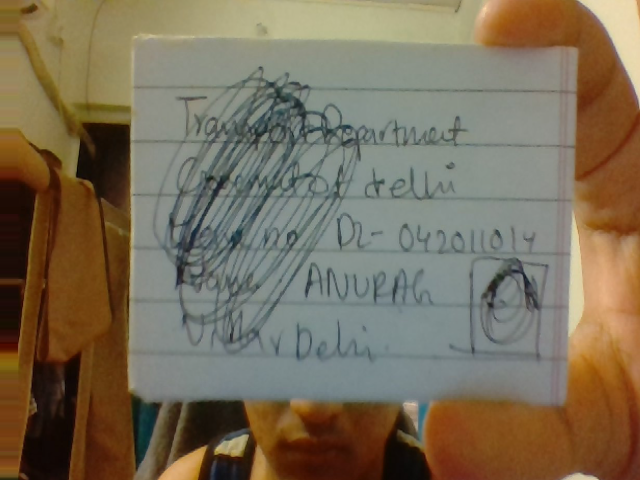 Transport Department
of delhi
no DL- 042011014
ANURAG
Delhi